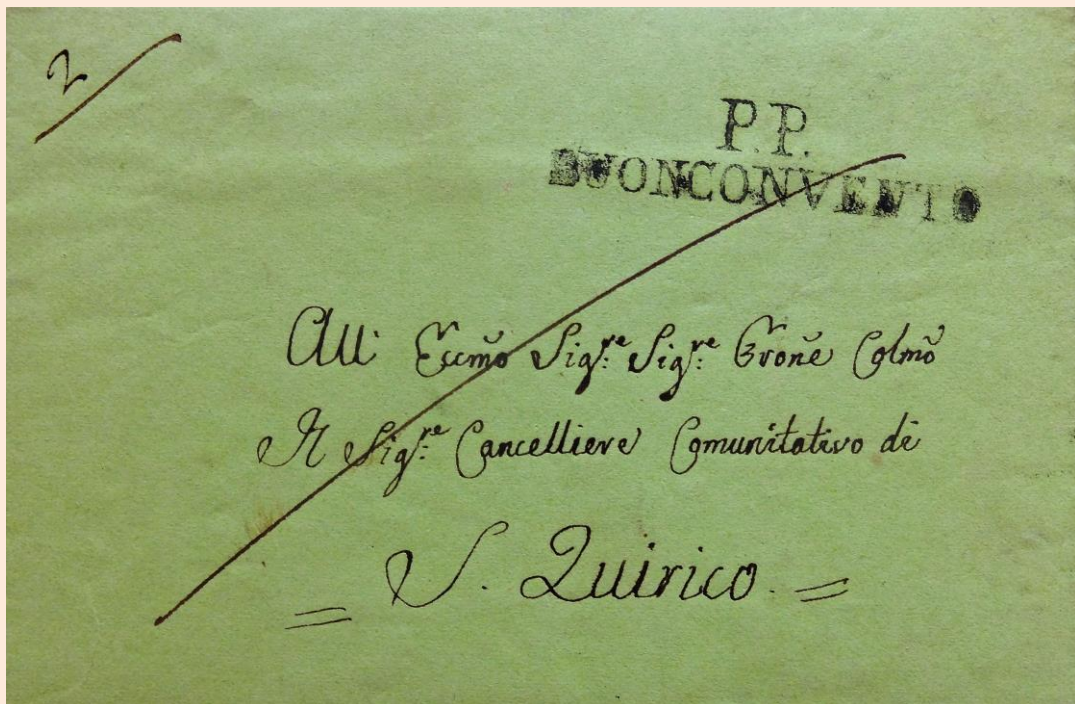 2
P.P.
BUONCONVENTO
All: Eccmõ Sig:re Sig:re Prone Colmõ
Il Sig:re Cancelliere Comunitativo di
= S. Quirico. =